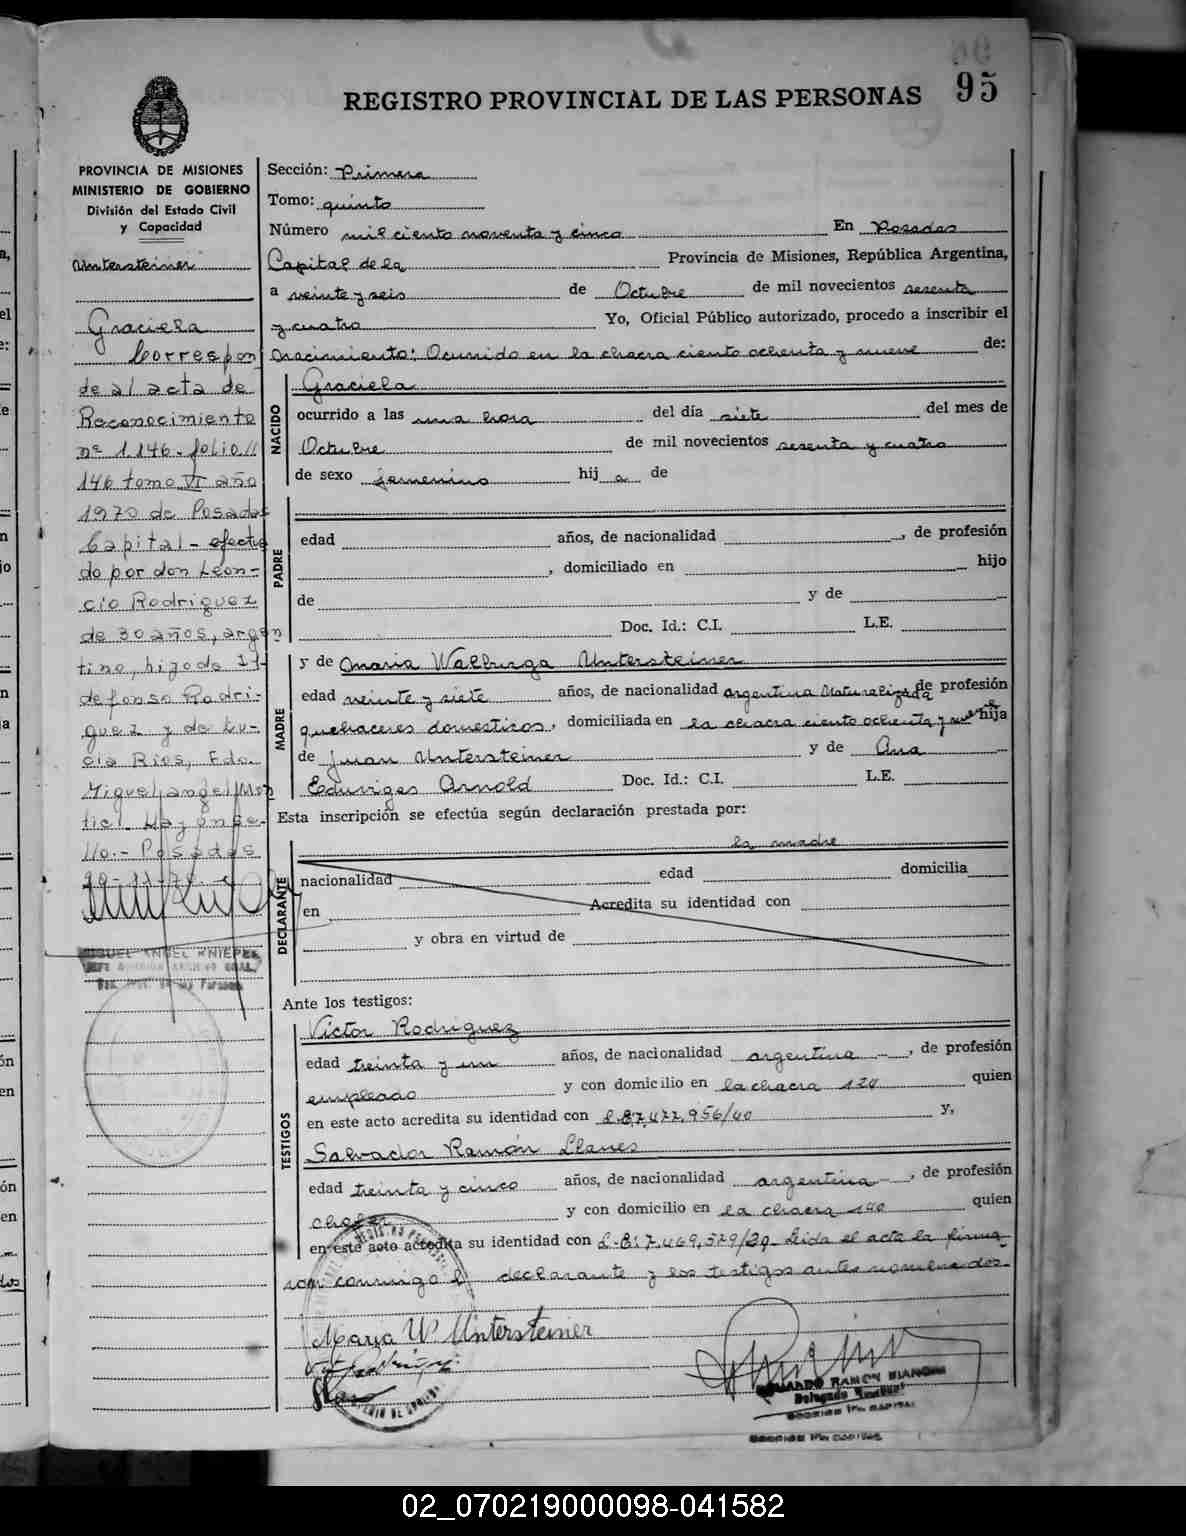 95
REGISTRO PROVINCIAL DE LAS PERSONAS
PROVINCIA DE MISIONES
MINISTERIO DE GOBIERNO
División del Estado Civil
y Capacidad
Untersteiner
Graciela
Correspon
de al acta de
Reconocimiento
nº 1146 - folio //
146 tomo VI año
1970 de Posadas
Capital - efectua
do por don Leon-
cio Rodriguez
de 30 años, argen
tino, hijo de Il-
defonso Rodri-
guez y de Lu-
cia Rios, Fdo.
Miguel angel Mon
tiel. Hay un se-
llo.- Posadas
MIGUEL ANGEL KNIEPEK
Sección: Primera
Tomo: quinto
Número mil ciento noventa y cinco En Posadas
Capital de la Provincia de Misiones, República Argentina,
a veinte y seis de Octubre de mil novecientos sesenta
y cuatro Yo, Oficial Público autorizado, procedo a inscribir el
nacimiento: Ocurrido en la chacra ciento ochenta y nueve de:
NACIDO
Graciela
ocurrido a las una hora del día siete del mes de
Octubre de mil novecientos sesenta y cuatro
de sexo femenino hij a de
PADRE
edad años, de nacionalidad , de profesión
, domiciliado en hijo
de y de
Doc. Id.: C.I. L.E.
MADRE
y de Maria Walburga Untersteiner
edad veinte y siete años, de nacionalidad argentina Naturalizada de profesión
quehaceres domesticos, domiciliada en la chacra ciento ochenta y nueve hija
de Juan Untersteiner y de Ana
Eduviges Arnold Doc. Id.: C.I. L.E.
Esta inscripción se efectúa según declaración prestada por:
la madre
DECLARANTE
nacionalidad edad domicilia
en Acredita su identidad con
y obra en virtud de
Ante los testigos:
TESTIGOS
Victor Rodriguez
edad treinta y un años, de nacionalidad argentina , de profesión
empleado y con domicilio en la chacra 120 quien
en este acto acredita su identidad con y,
Salvador Ramón Llanes
edad treinta y cinco años, de nacionalidad argentina , de profesión
chofer y con domicilio en la chacra 190 quien
en este acto acredita su identidad con Leida el acta la firma-
ron conmigo el declarante y los testigos antes nombrados.
Maria W. Untersteiner
EDUARDO RAMON BIANCHI
Delegado
02_070219000098-041582